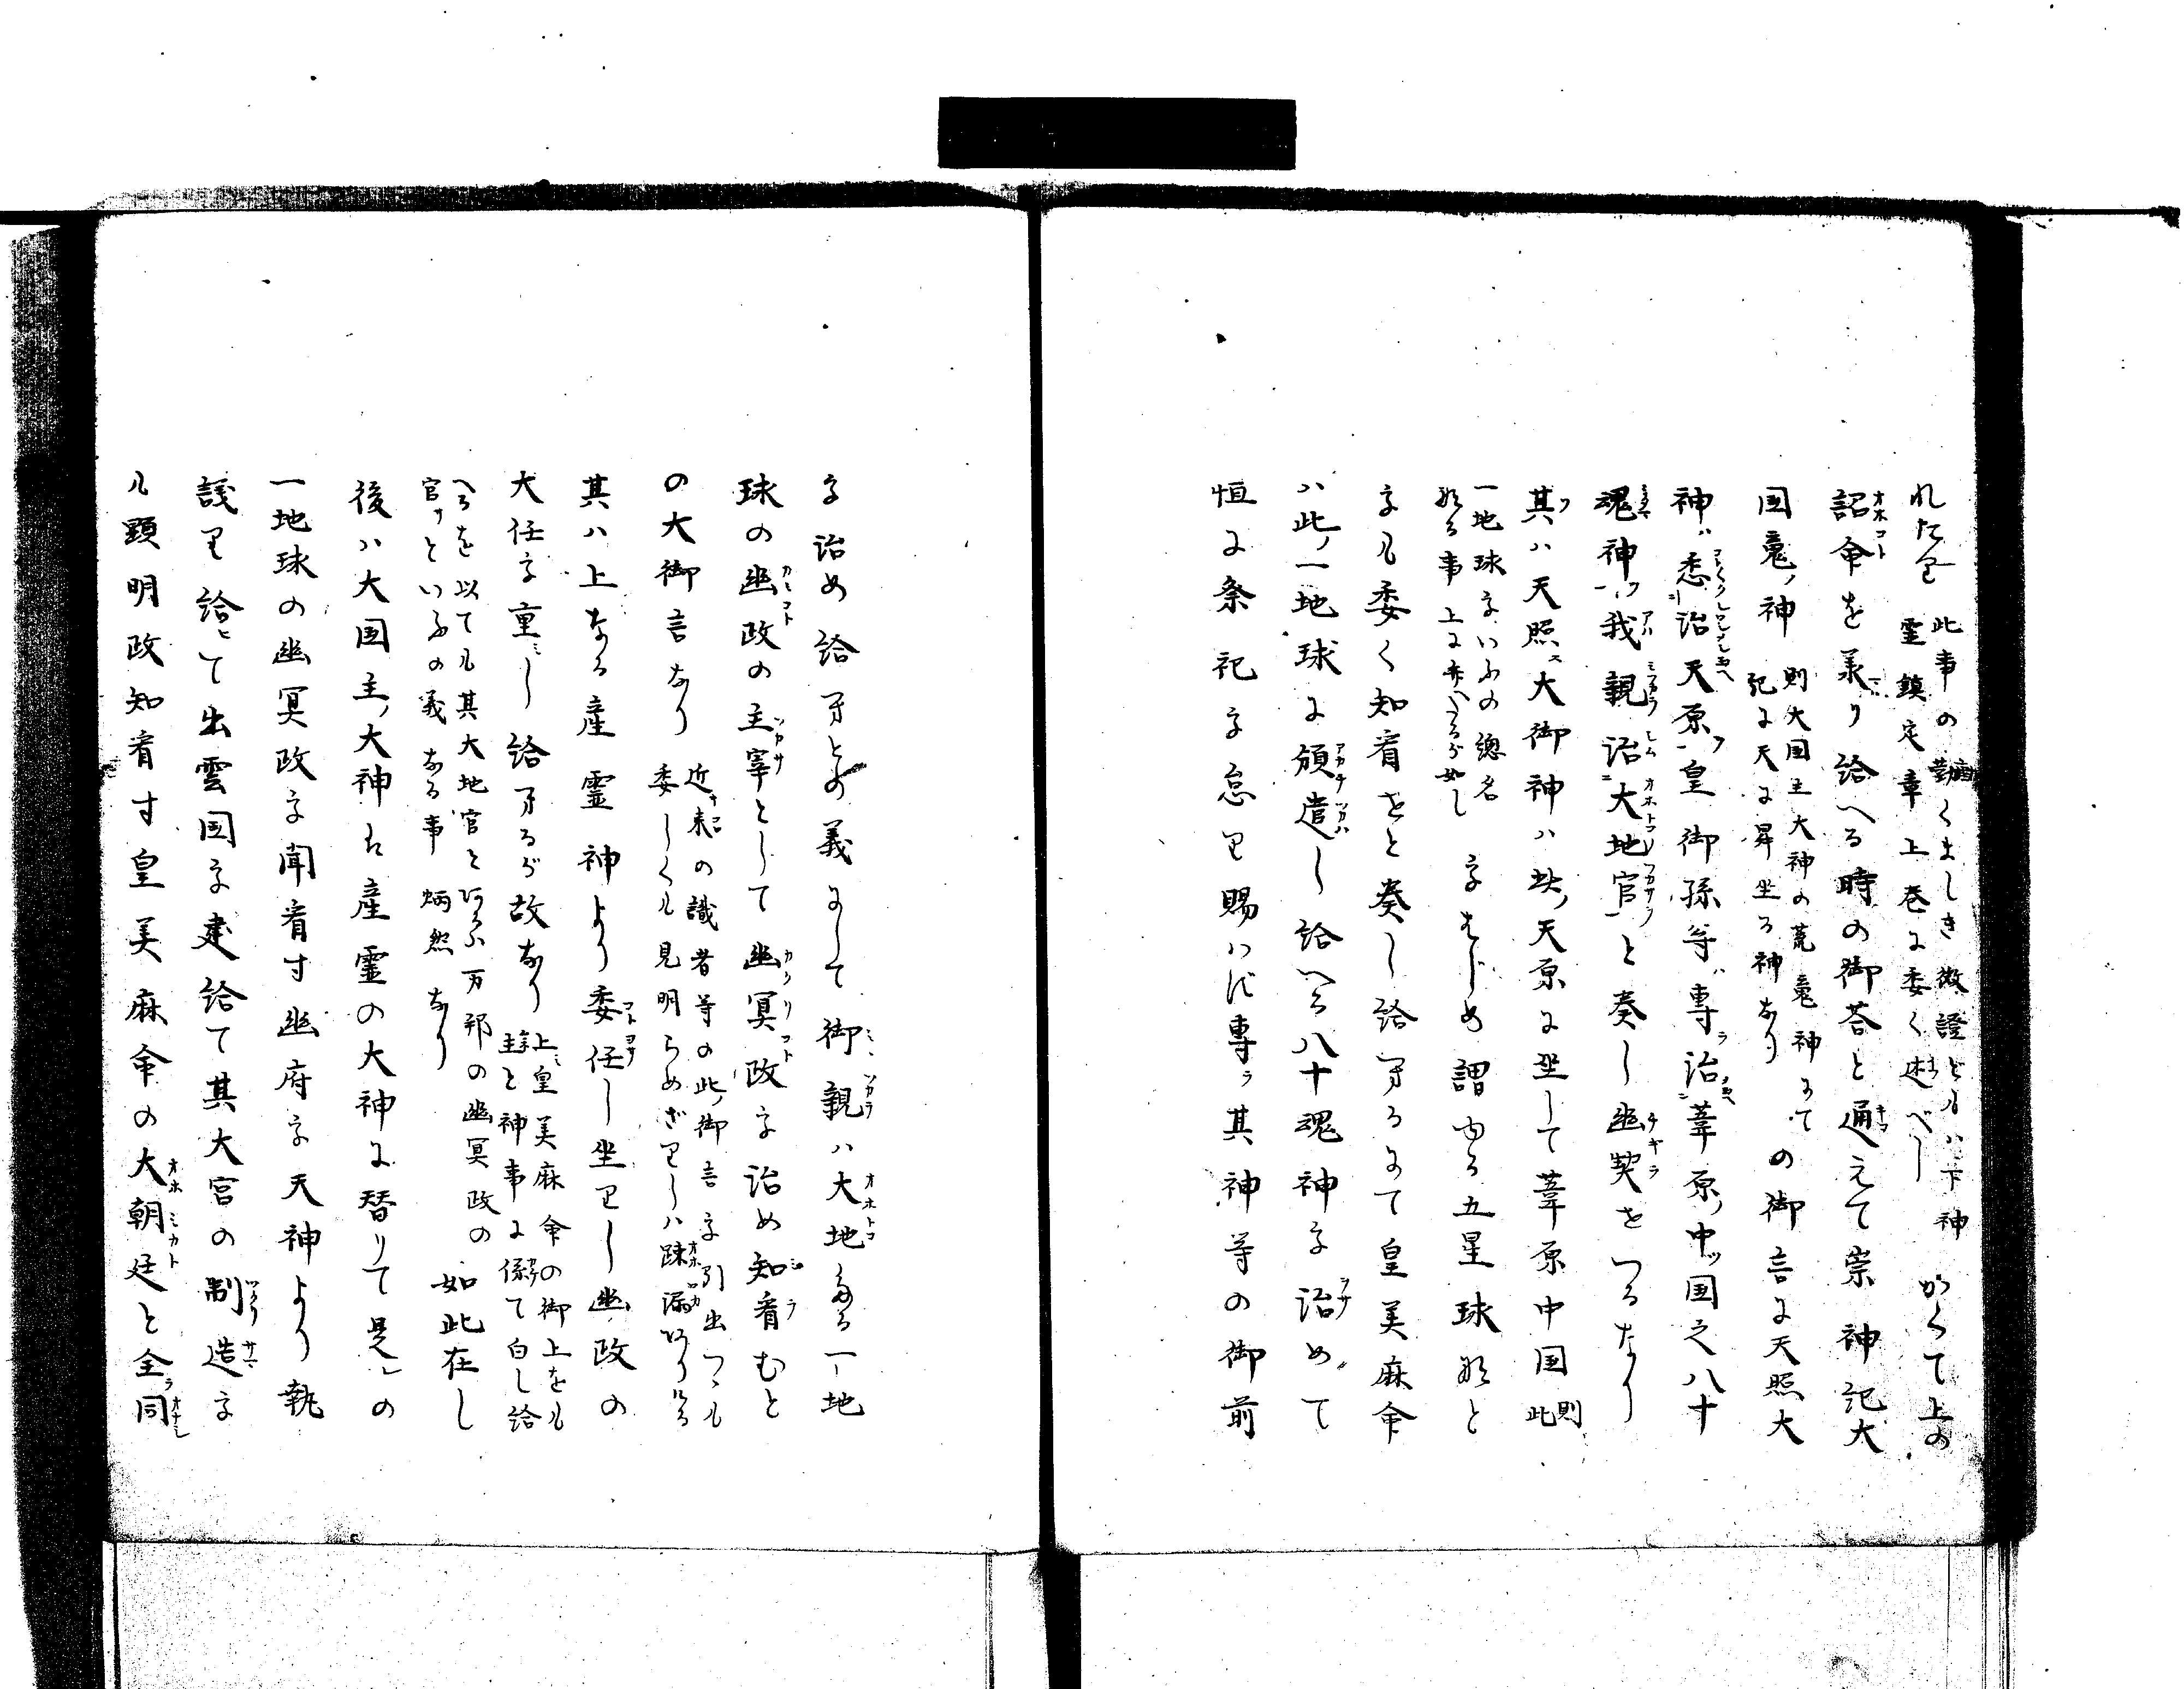 れたる 此事の動くましき徴證ともハ下神霊鎮定章上巻に委く述べし かくて上の
詔命を承り給へる時の御荅と通えて崇神記大
国魂ノ神 則大国主大神の荒魂神にての御言に天照大
記に天に昇坐る神なり
神ハ悉治天原皇御孫等ハ専治葦原中国之八十
魂神我親治大地官と奏し幽契をつるなり
其ハ天照大御神ハ天原に坐して葦原中国 則此
一地球をいふの總名
なる事上に弁へるが如し をはじめ謂ゆる五星球など
をも委く知看せと奏し給ひるにて皇美麻命
ハ此ノ一地球に頒遣し給へる八十魂神を治めて
恒に祭祀を怠り賜ハず専ラ其神等の御前
を治め給ひとの義にして御親ハ大地なる一地
球の幽政の主宰として幽冥政を治め知看むと
の大御言なり 近来の識者等の此御言を引出つゝも
委しくも見明らめざりしハ疎漏なりける
其ハ上なる産霊神より委任し坐りし幽政の
大任を重し給ひるが故なり 上皇美麻命の御上をも
主と神事に係て白し給
へるを以ても其大地官とハ万邦の幽冥政の
官といふの義なる事炳然なり 如此在し
後ハ大国主大神ハ産霊の大神に替りて是の
一地球の幽冥政を聞看す幽府を天神より執
議り給ひて出雲国を建給て其大宮の制造を
も顕明政知看す皇美麻命の大朝廷と全同